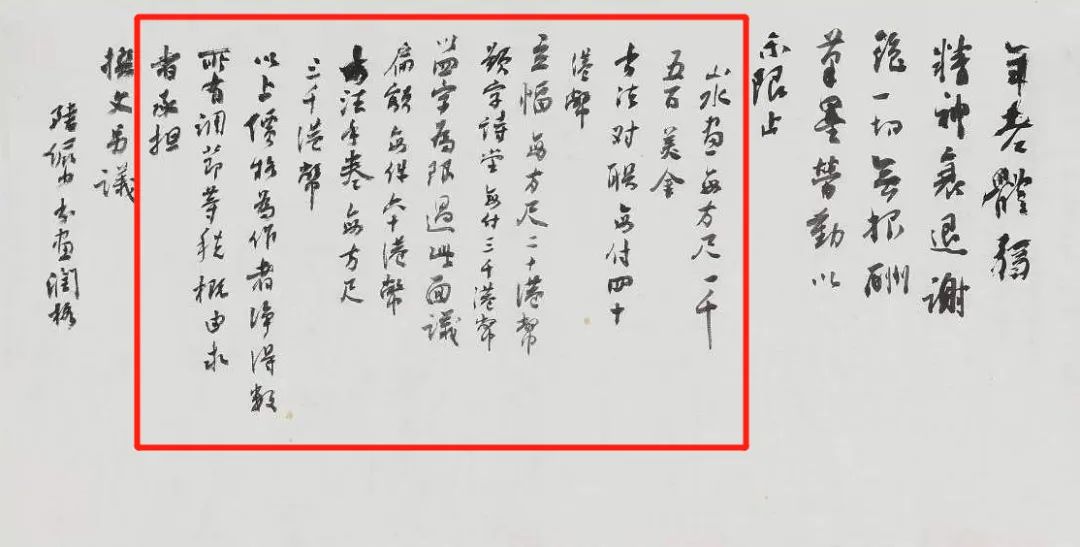 年老體弱
精神衰退謝
絕一切無报酬
筆墨營勤以
示限止
山水画每方尺一千
五百美金
书法对联每付四十
港幣
立幅每方尺二十港幣
题字诗堂每付三千港幣
以四字為限過此面議
扁额每件六十港幣
书法手卷每方尺
三千港幣
以上價格為作者净得数
所有调节等税概由求
者承担
撰文另議
陸儼少书画润格